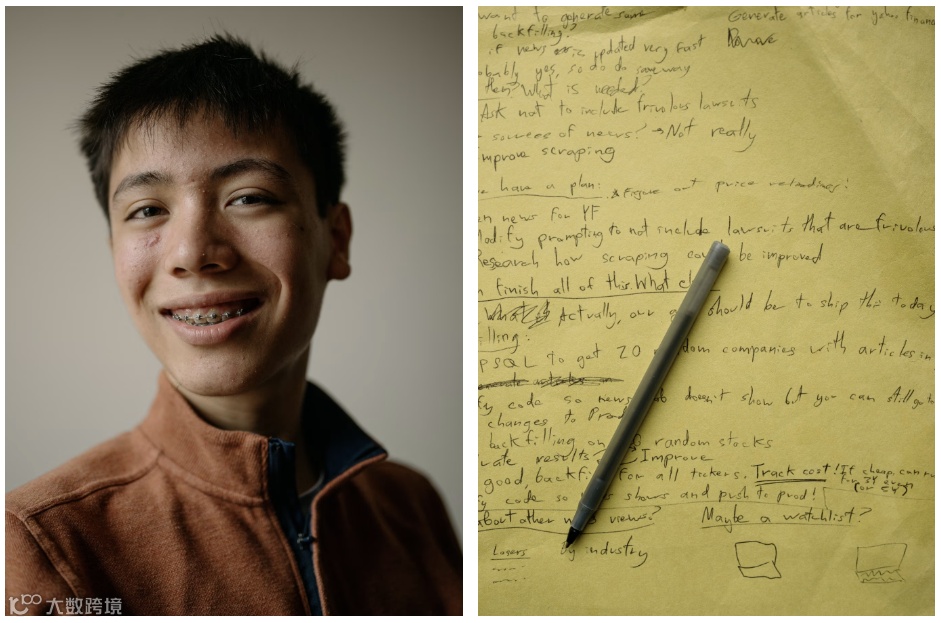 want to generate some
backfilling?
if news updated very fast
yes, so do
them? What is needed?
Ask not to include frivolous lawsuits
sources of news? → Not really
improve scraping
have a plan: * Figure out price
news for YF
Modify prompting to not include lawsuits that are frivolous
Research how scraping be improved
finish all of this. What
Actually, our should be to ship this today
PSQL to get 20 companies with articles in
code so news doesn't show but you can still go to
changes to Prod
backfilling on random stocks
results? Improve
good, for all tickers. Track cost! If cheap, can
code so shows and push to prod!
about other views? Maybe a watchlist?
by industry
Generate articles for yahoo finance
大数跨境